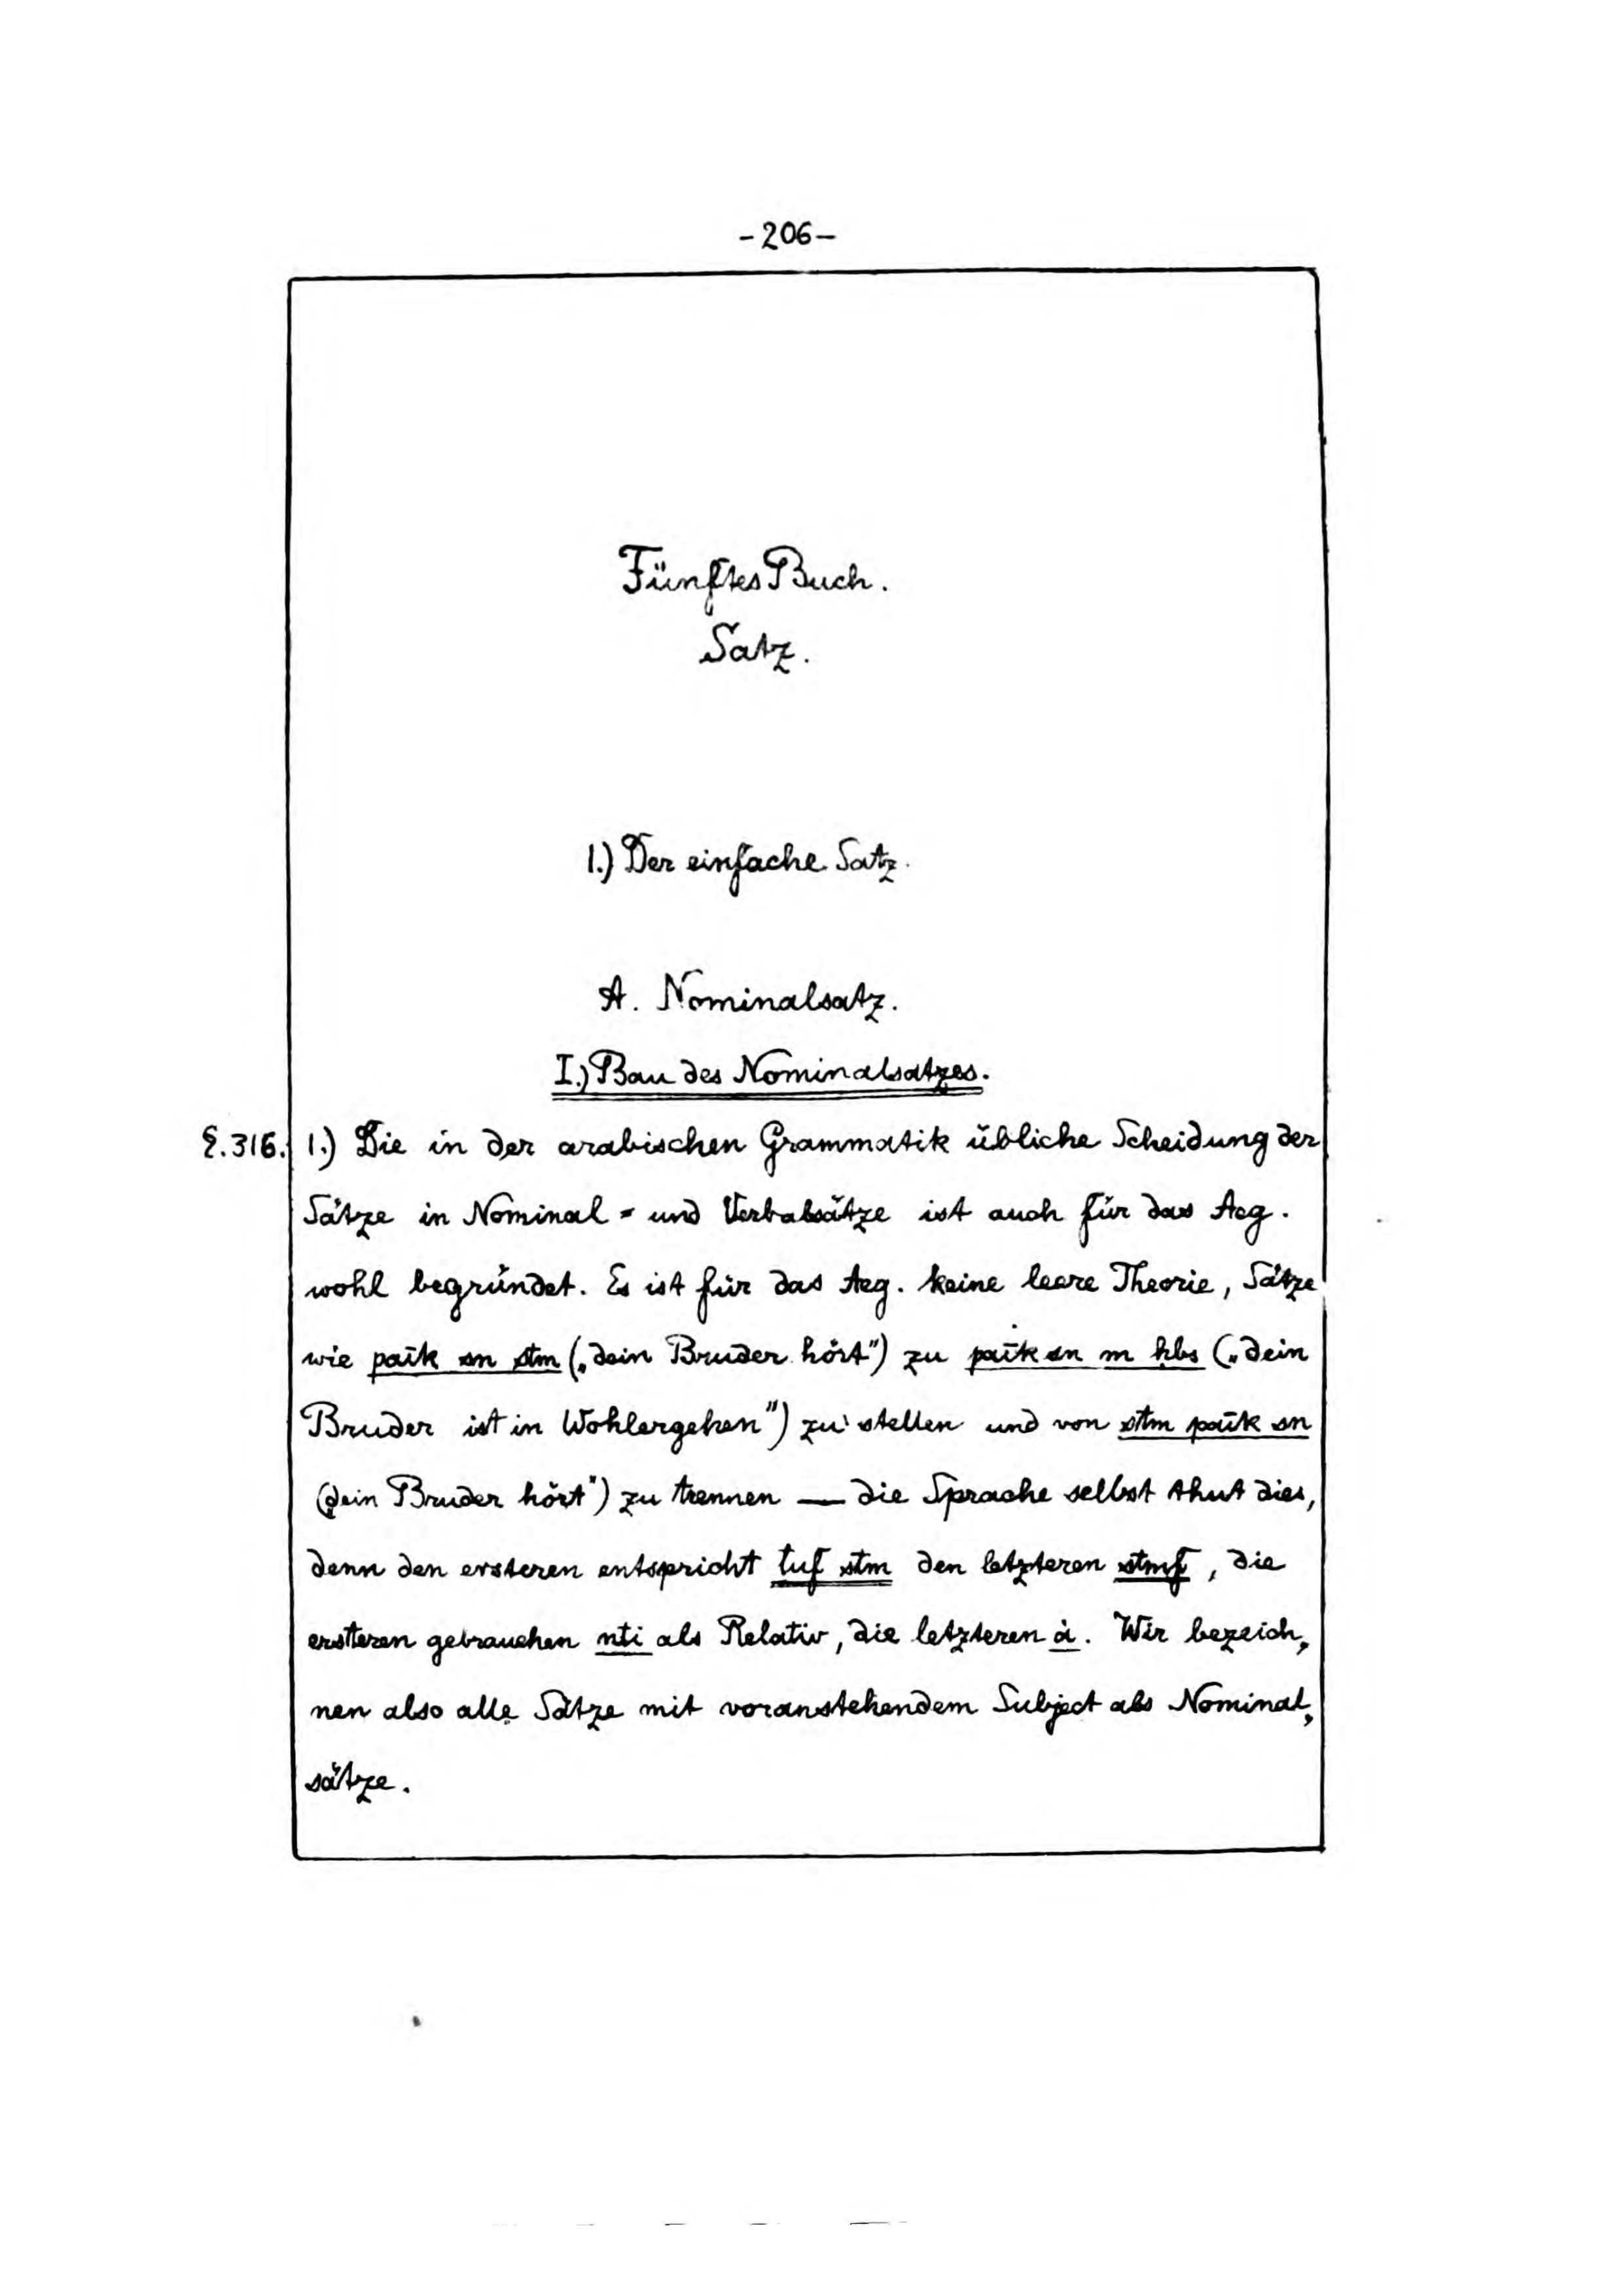 -206-
Fünftes Buch.
Satz.
1.) Der einfache Satz.
A. Nominalsatz.
I.) Bau des Nominalsatzes.
§.316. 1.) Die in der arabischen Grammatik übliche Scheidung der
Sätze in Nominal= und Verbalsätze ist auch für das Aeg.
wohl begründet. Es ist für das Aeg. keine leere Theorie, Sätze
wie paīk sn stm („dein Bruder hört") zu paīk sn m ḥbs („dein
Bruder ist in Wohlergehen") zu stellen und von stm paīk sn
(„dein Bruder hört") zu trennen — die Sprache selbst thut dies,
denn den ersteren entspricht tuf stm den letzteren stmf, die
ersteren gebrauchen nti als Relativ, die letzteren ȧ. Wir bezeich„
nen also alle Sätze mit voranstehendem Subject als Nominal„
sätze.